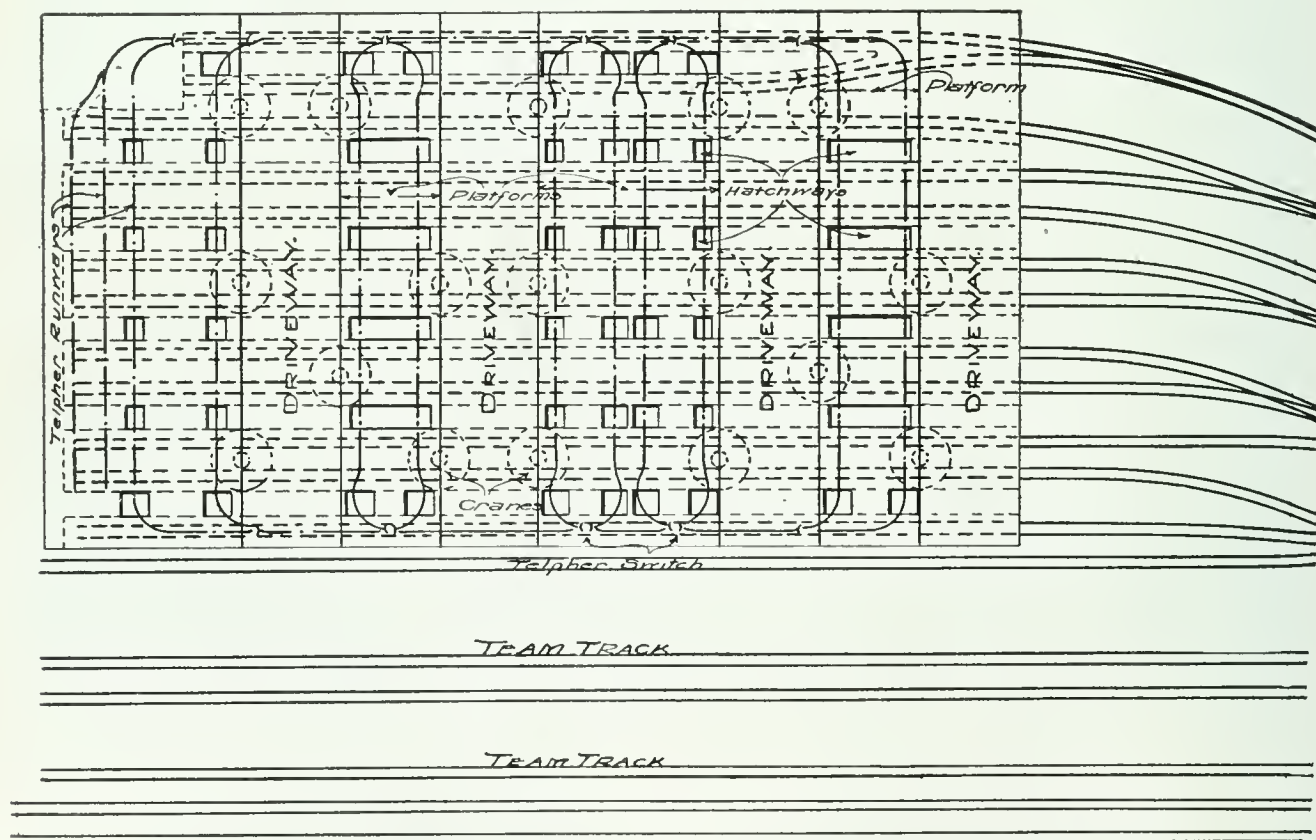 Platform
Platforms
Hatchways
Telpher Runways
DRIVEWAY.
DRIVEWAY.
DRIVEWAY.
DRIVEWAY.
Cranes
Telpher Switch
TEAM TRACK
TEAM TRACK